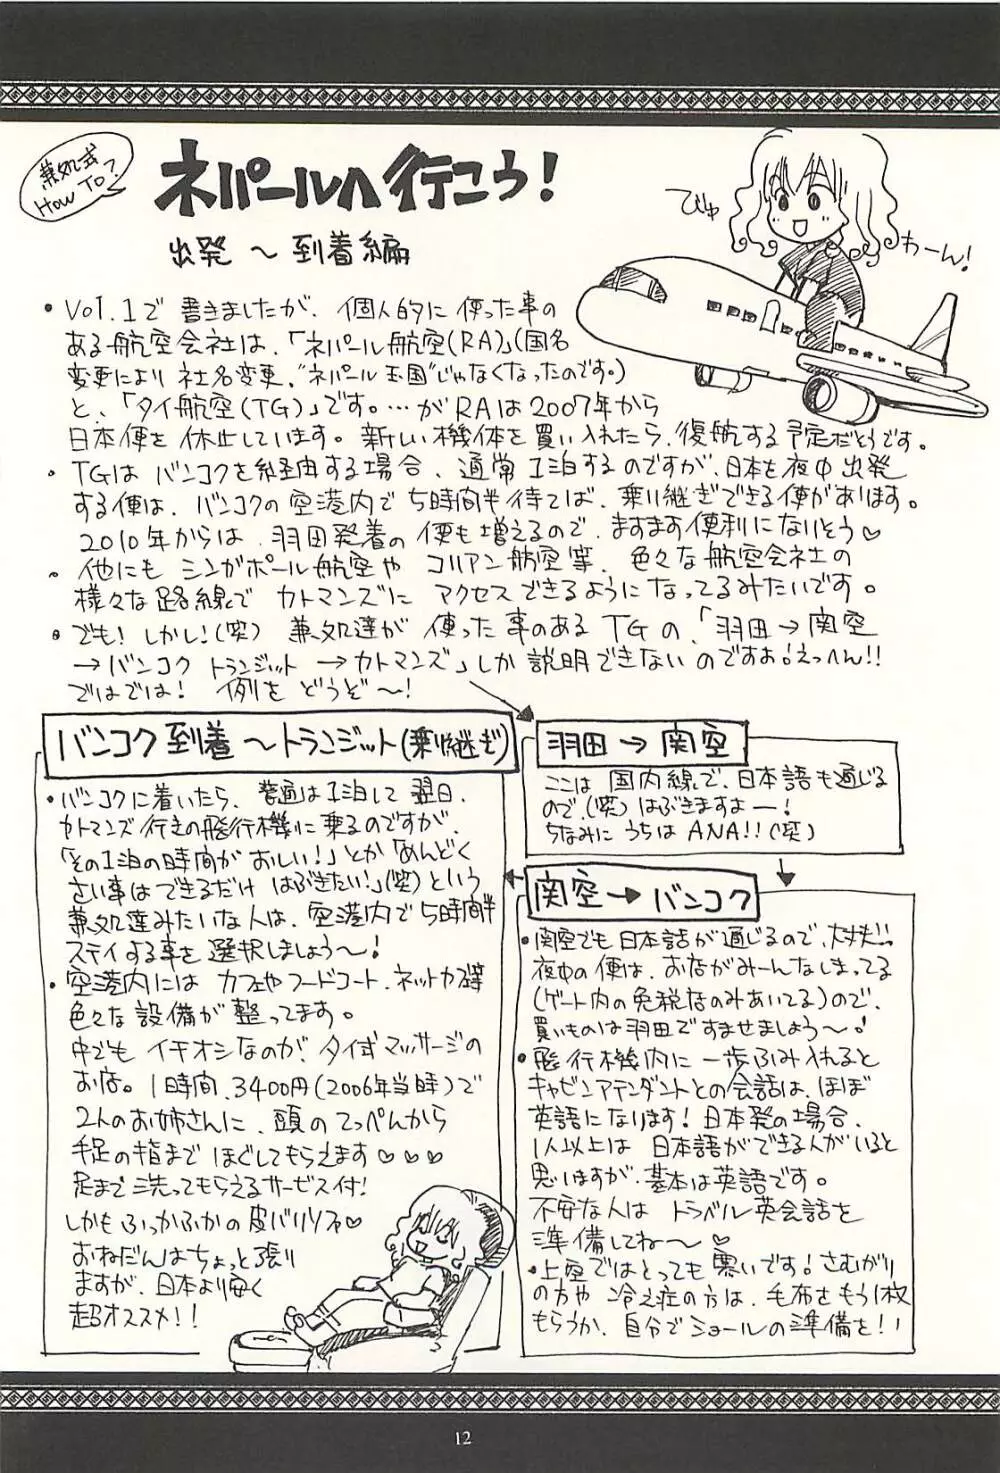 兼処式
HOW TO?
ネパールへ行こう!
出発 ~ 到着編
びゅ
わーん!
・Vol.1で 書きましたが、個人的に 使った事の
ある航空会社は、「ネパール航空(RA)」(国名
変更により 社名変更。"ネパール王国"じゃなくなったのです。)
と、「タイ航空(TG)」です。…が RAは2007年から
日本便を 休止しています。新しい機体を買い入れたら、復航する予定だそうです。
・TGは バンコクを経由する場合、通常1泊するのですが、日本を夜中出発
する便は、バンコクの空港内で5時間半待てば、乗り継ぎできる便があります。
2010年からは、羽田発着の便も増えるので、ますます便利になりそう♡
・他にも シンガポール航空や コリアン航空等、色々な航空会社の
様々な路線で カトマンズに アクセスできるようになってるみたいです。
・でも!しかし!(笑) 兼処達が 使った事のある TGの、「羽田→関空
→バンコク トランジット →カトマンズ」しか説明できないのですよ!えっへん!!
ではでは! 例を どうぞ~!
バンコク到着~トランジット(乗り継ぎ)
・バンコクに着いたら、普通は1泊して翌日、
カトマンズ行きの飛行機に乗るのですが、
「その1泊の時間がおしい!」とか「めんどく
さい事はできるだけ はぶきたい!」(笑)という
兼処達みたいな人は、空港内で5時間半
ステイする事を選択しましょう~!
・空港内には カフェやフードコート、ネットカフェ等
色々な設備が整ってます。
中でも イチオシなのが、タイ式マッサージの
お店。1時間、3400円(2006年当時)で
2人のお姉さんに、頭のてっぺんから
手足の指まで ほぐしてもらえます♡♡♡
足まで洗ってもらえるサービス付!
しかもふっかふかの皮バリソファ♡
おねだんはちょっと張り
ますが、日本より安く
超オススメ!!
羽田→関空
ここは 国内線で、日本語も通じる
ので、(笑)はぶきますよー!
ちなみに うちは ANA!!(笑)
関空→バンコク
・関空でも日本語が通じるので、大丈夫!!
夜中の便は、お店がみーんなしまってる
(ゲート内の免税店のみあいてる)ので、
買いものは羽田ですませましょう~!
・飛行機内に 一歩ふみ入れると
キャビンアテンダントとの会話は、ほぼ
英語になります!日本発の場合、
1人以上は 日本語ができる人がいると
思いますが、基本は英語です。
不安な人は トラベル英会話を
準備してね~♡
・上空ではとっても寒いです!さむがり
の方や 冷え症の方は、毛布をもう1枚
もらうか、自分でショールの準備を!!
12